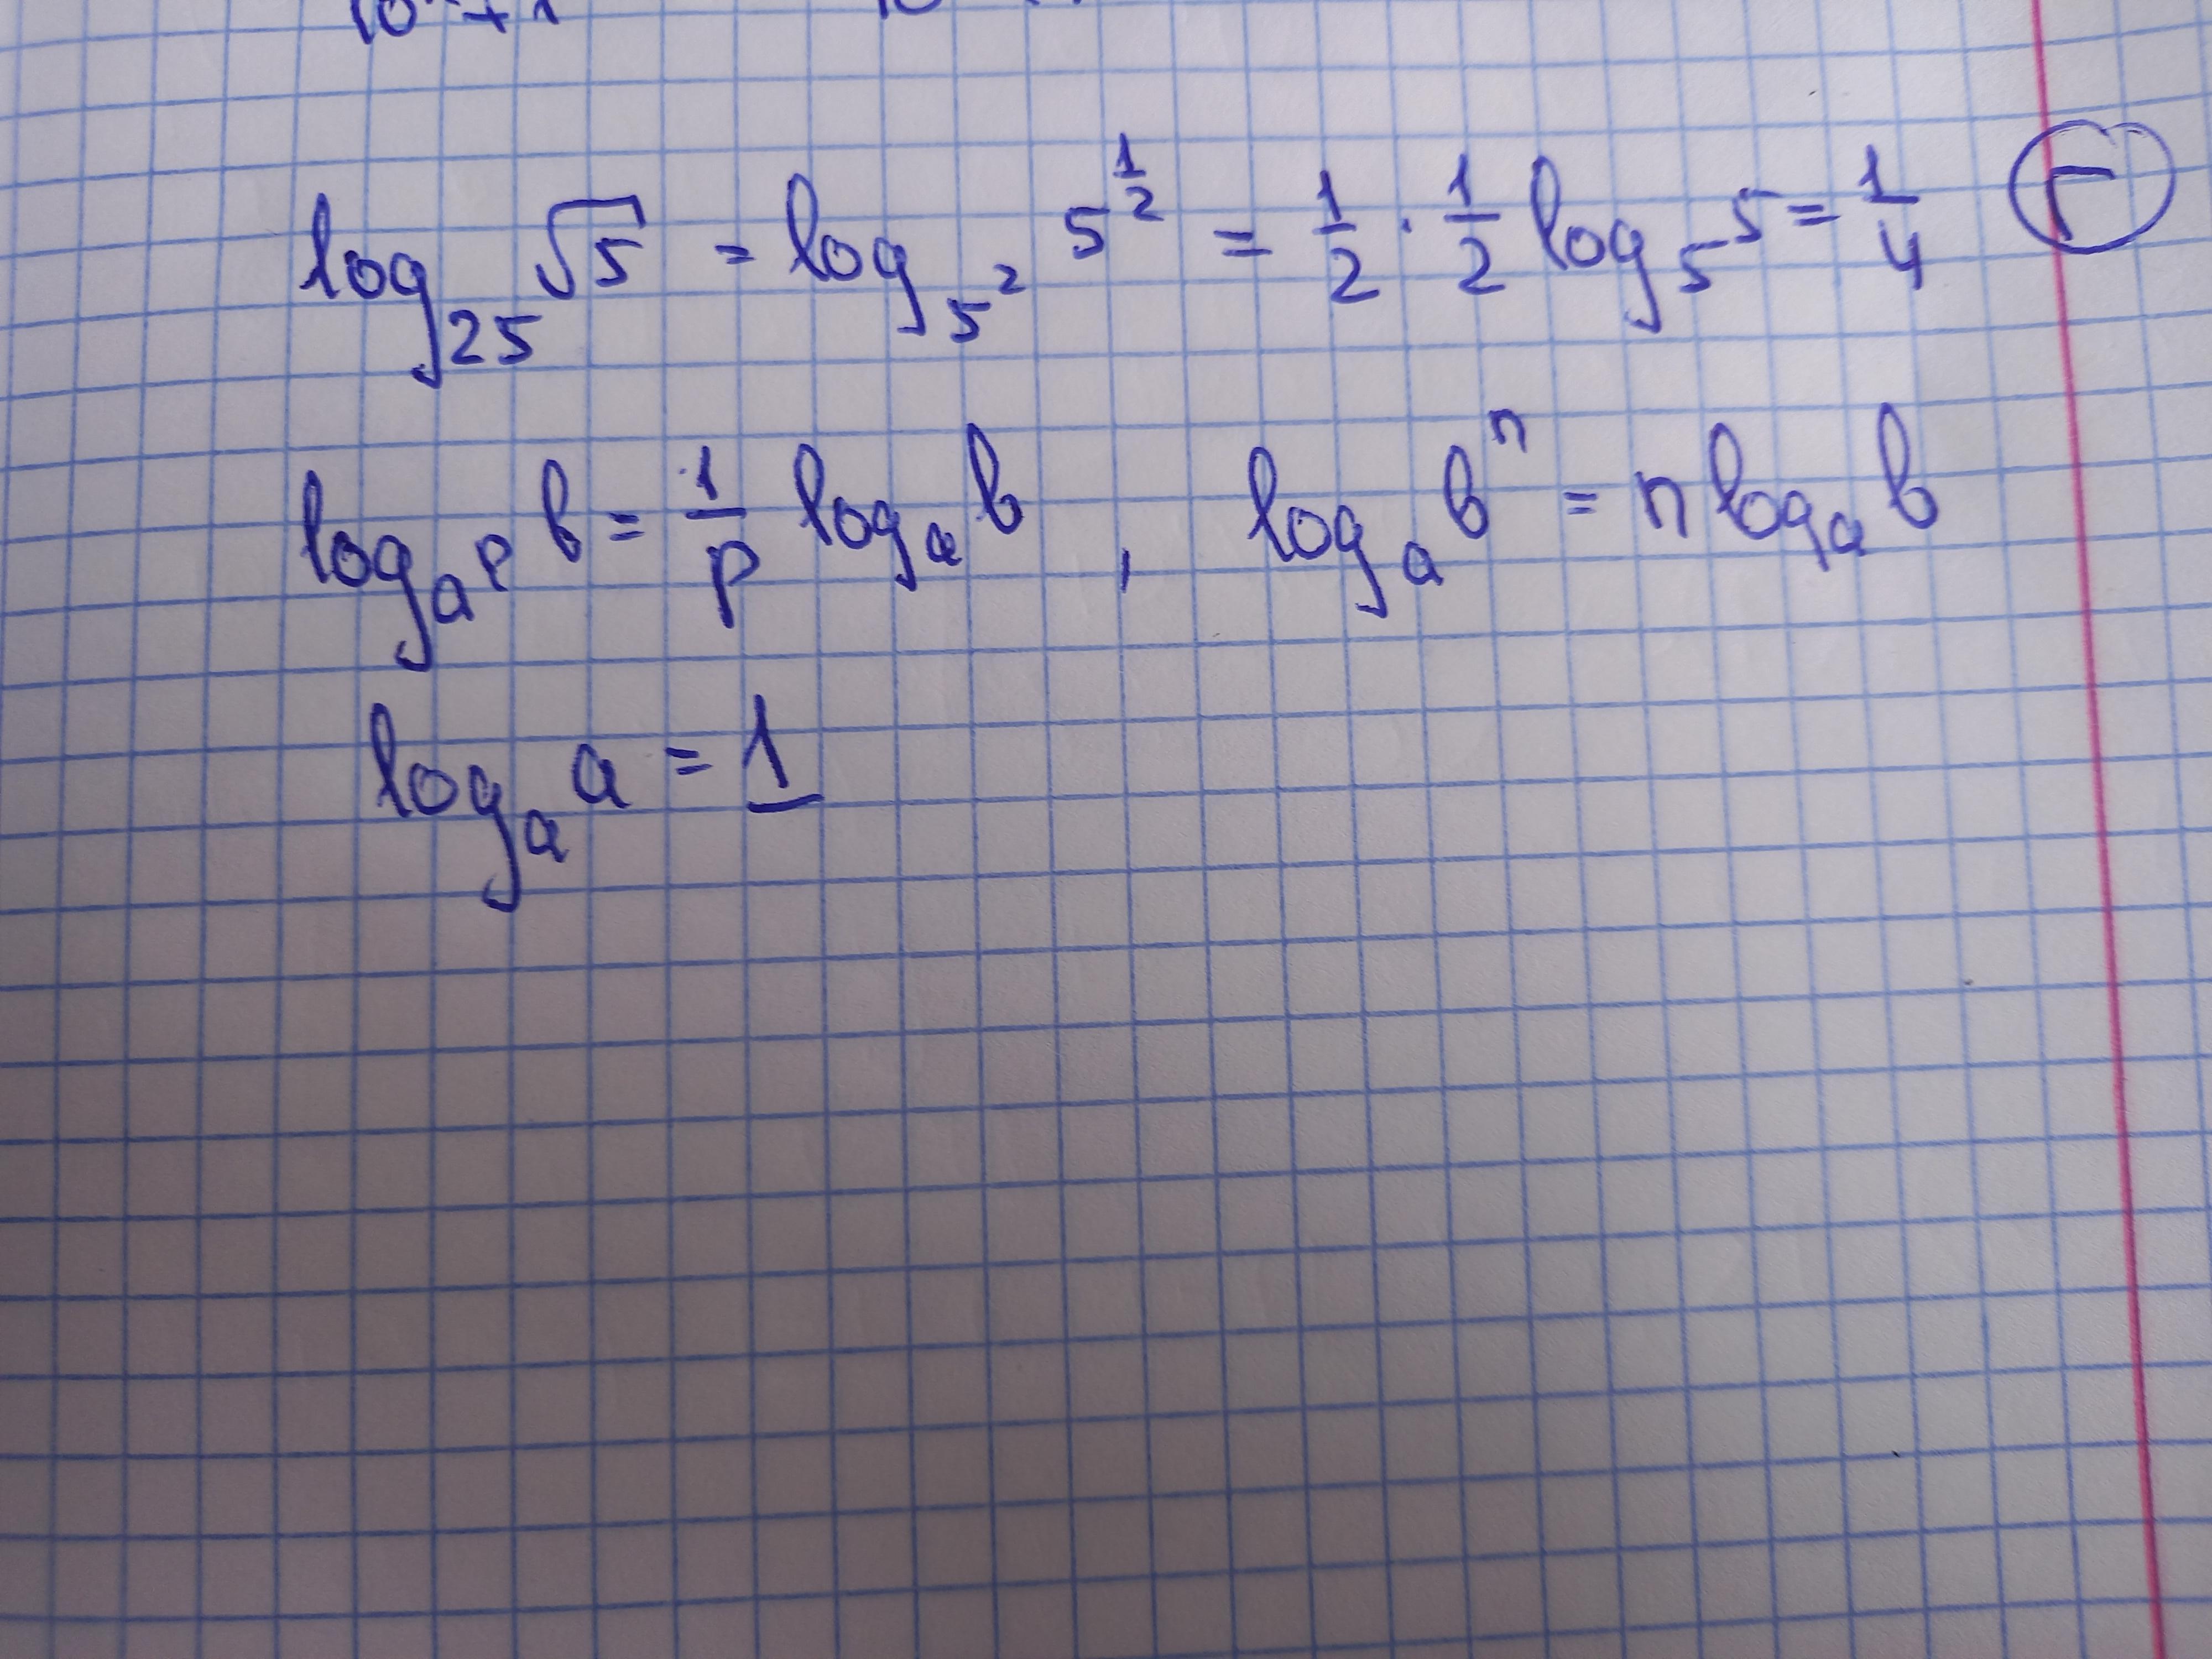 10 + 1
log₂₅ √5 = log_{5²} 5^{1/2} = 1/2 · 1/2 log₅ 5 = 1/4 Г
log_{a^p} b = 1/p log_a b , log_a b^n = n log_a b
log_a a = 1